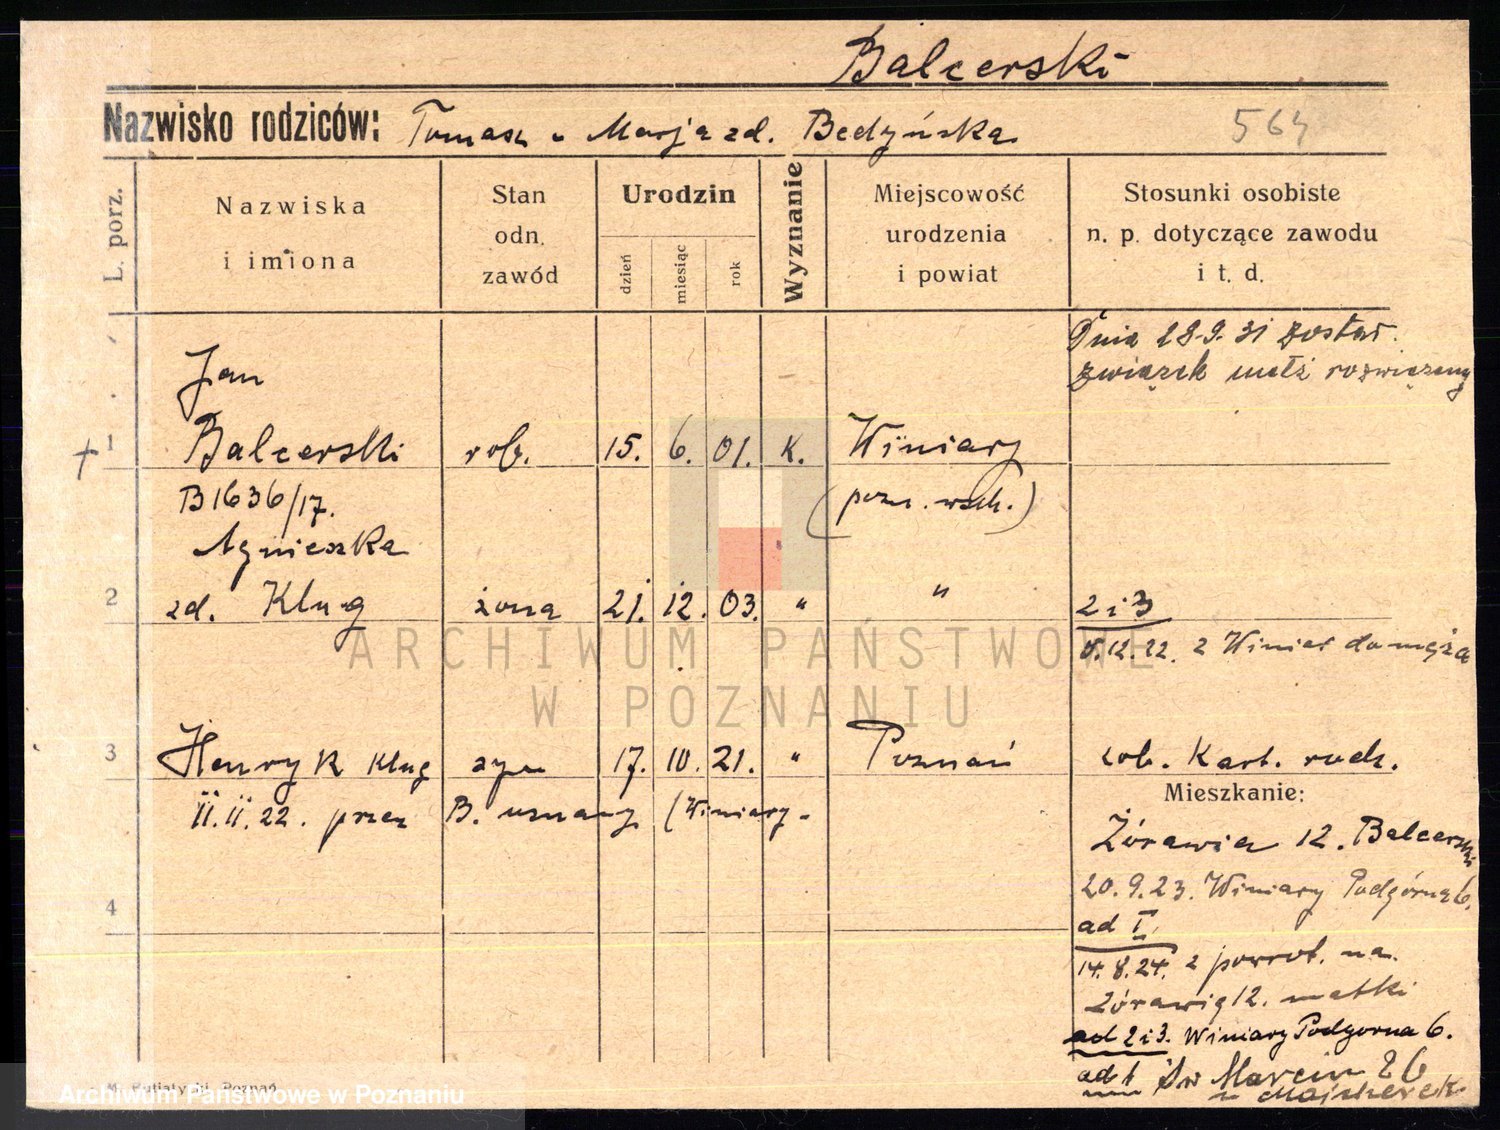 Balcerski
Nazwisko rodziców: Tomasz i Marja zd. Bedyńska 564
L. porz.
Nazwiska i imiona
Stan odn. zawód
Urodzin
dzień miesiąc rok
Wyznanie
Miejscowość urodzenia i powiat
Stosunki osobiste n. p. dotyczące zawodu i t. d.
Dnia 28.9.31 został
związek małż rozwiązany
Jan
+ 1 Balcerski rob. 15. 6. 01. K. Winiary
B1636/17. (pozn. wsch.)
Agnieszka
2 zd. Klug żona 21. 12. 03. " " 2 i 3
12.22. z Winiar do męża
3 Henryk Klug syn 17. 10. 21. " Poznań zob. Kart. rodz.
11.11.22. przez B. uznany (Winiary.
Mieszkanie:
Żórawia 12. Balcerski
20.9.23. Winiary Podgórna 6.
4
ad I
14.8.24. z powrot. na
Żórawią 12. matki
ad 2 i 3. Winiary Podgorna 6.
ad 1 Św Marcin 26
u Majcherek
M. Putiatycki, Poznań
ARCHIWUM PAŃSTWOWE
W POZNANIU
Archiwum Państwowe w Poznaniu